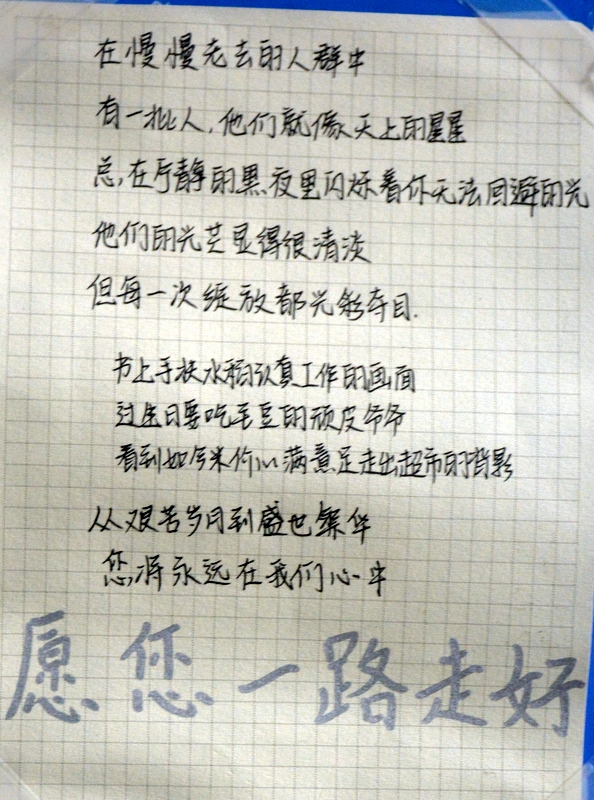 在慢慢老去的人群中
有一批人，他们就像天上的星星
总在宁静的黑夜里闪烁着你无法回避的光
他们的光芒显得很清淡
但每一次绽放都光彩夺目.
书上手扶水稻认真工作的画面
过生日要吃毛豆的顽皮爷爷
看到如今米价心满意足走出超市的背影
从艰苦岁月到盛世繁华
您将永远在我们心中
愿您一路走好